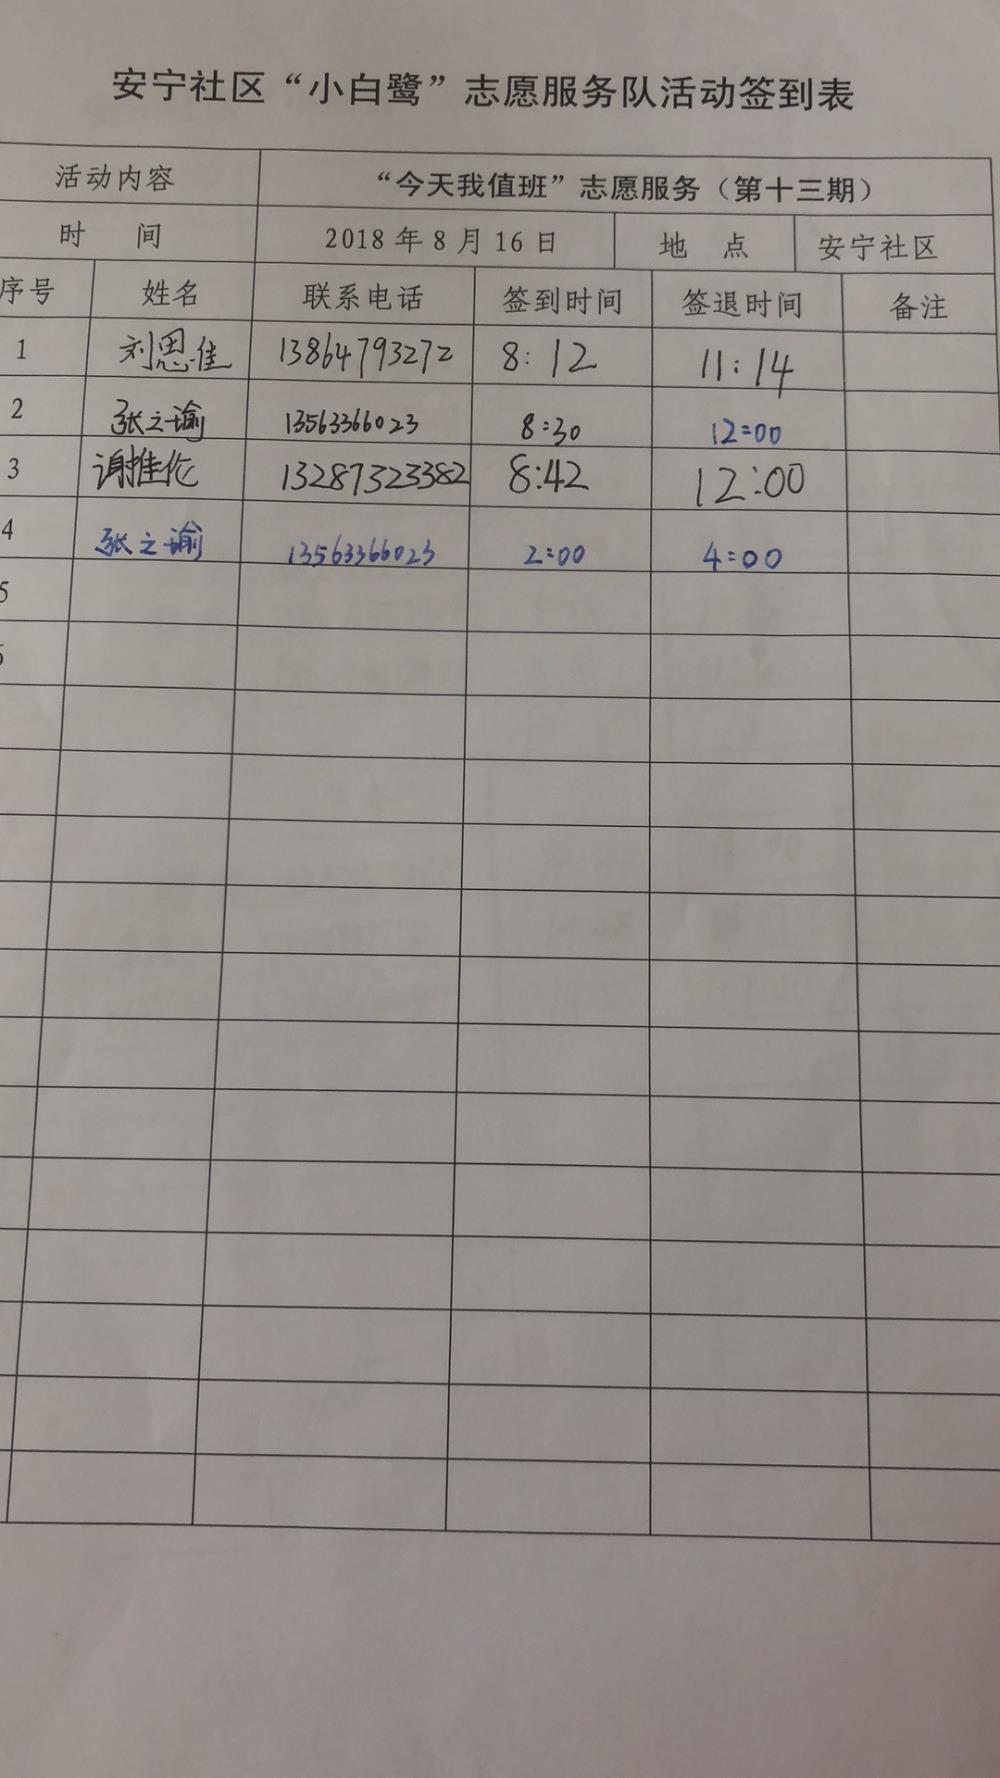 安宁社区“小白鹭”志愿服务队活动签到表
活动内容 “今天我值班”志愿服务（第十三期）
时 间 2018年8月16日 地 点 安宁社区
序号 姓名 联系电话 签到时间 签退时间 备注
1 刘思佳 13864793272 8:12 11:14
2 张之瑜 13563366023 8:30 12:00
3 谢推伦 13287323382 8:42 12:00
4 张之瑜 13563366023 2:00 4:00
5
6